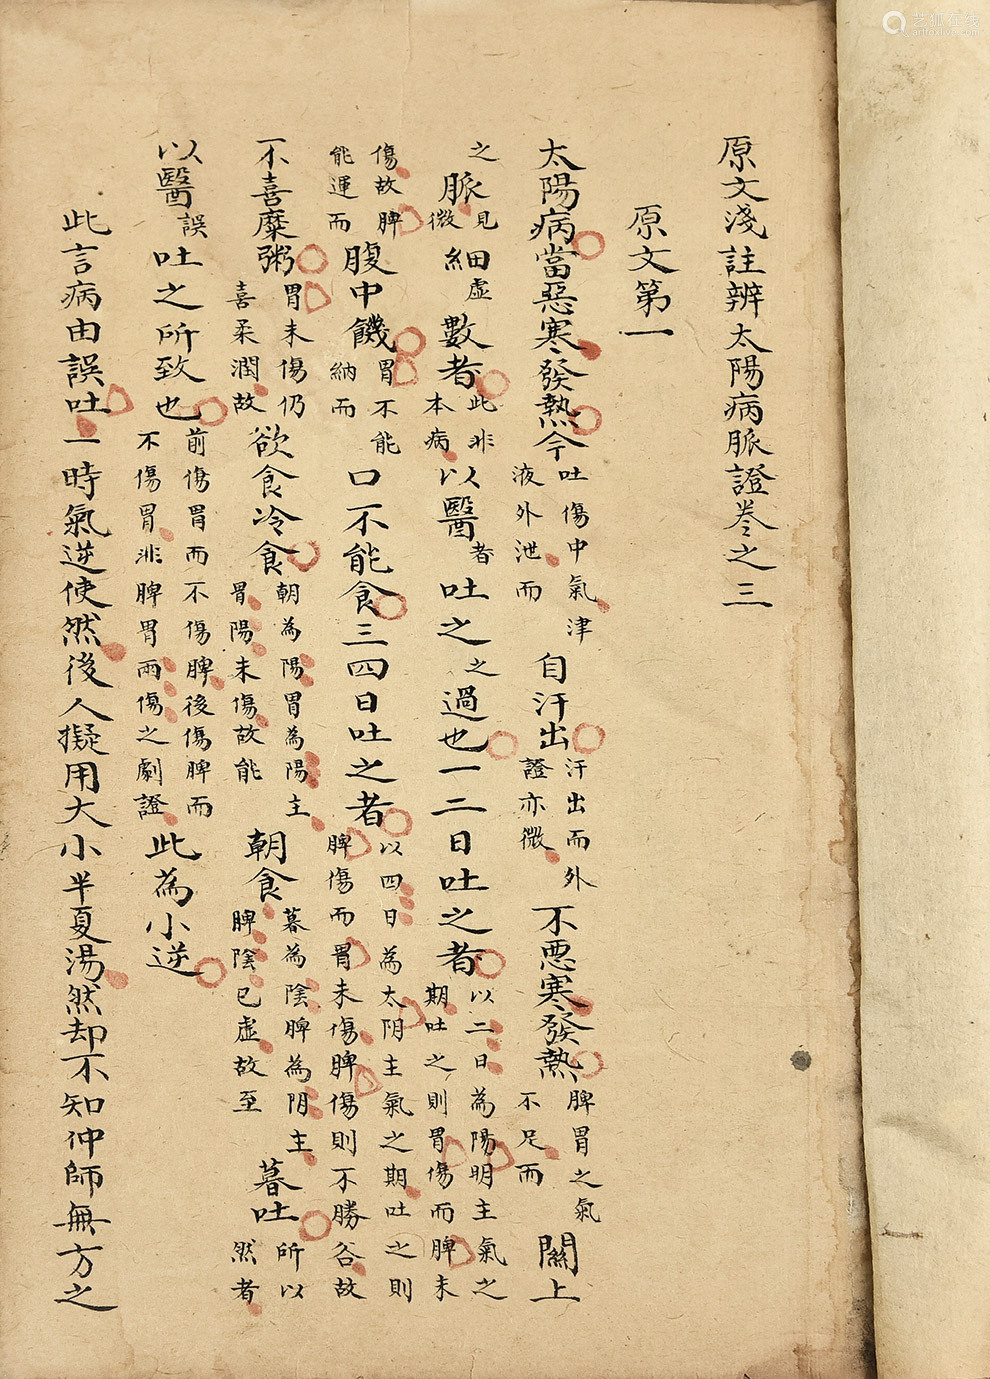 原文淺註辨太陽病脈證卷之三
原文第一
太陽病當惡寒發熱今吐傷中氣津液外泄而自汗出汗出而外證亦微不悪寒發熱脾胃之氣不足而關上
之脈見微細虛數者此非本病以醫者吐之之過也一二日吐之者以二日為陽明主氣之期吐之則胃傷而脾未
傷故脾能運而腹中饑胃不能納而口不能食三四日吐之者以四日為太阴主氣之期吐之則脾傷而胃未傷脾傷則不勝谷故
不喜糜粥胃未傷仍喜柔潤故欲食冷食朝為陽胃為陽主胃陽未傷故能朝食暮為陰脾為阴主脾陰已虛故至暮吐所以然者
以醫誤吐之所致也前傷胃而不傷脾後傷脾而不傷胃非脾胃兩傷之劇證此為小逆
此言病由誤吐一時氣逆使然後人擬用大小半夏湯然却不知仲師無方之
艺狐在线
artfoxlive.com